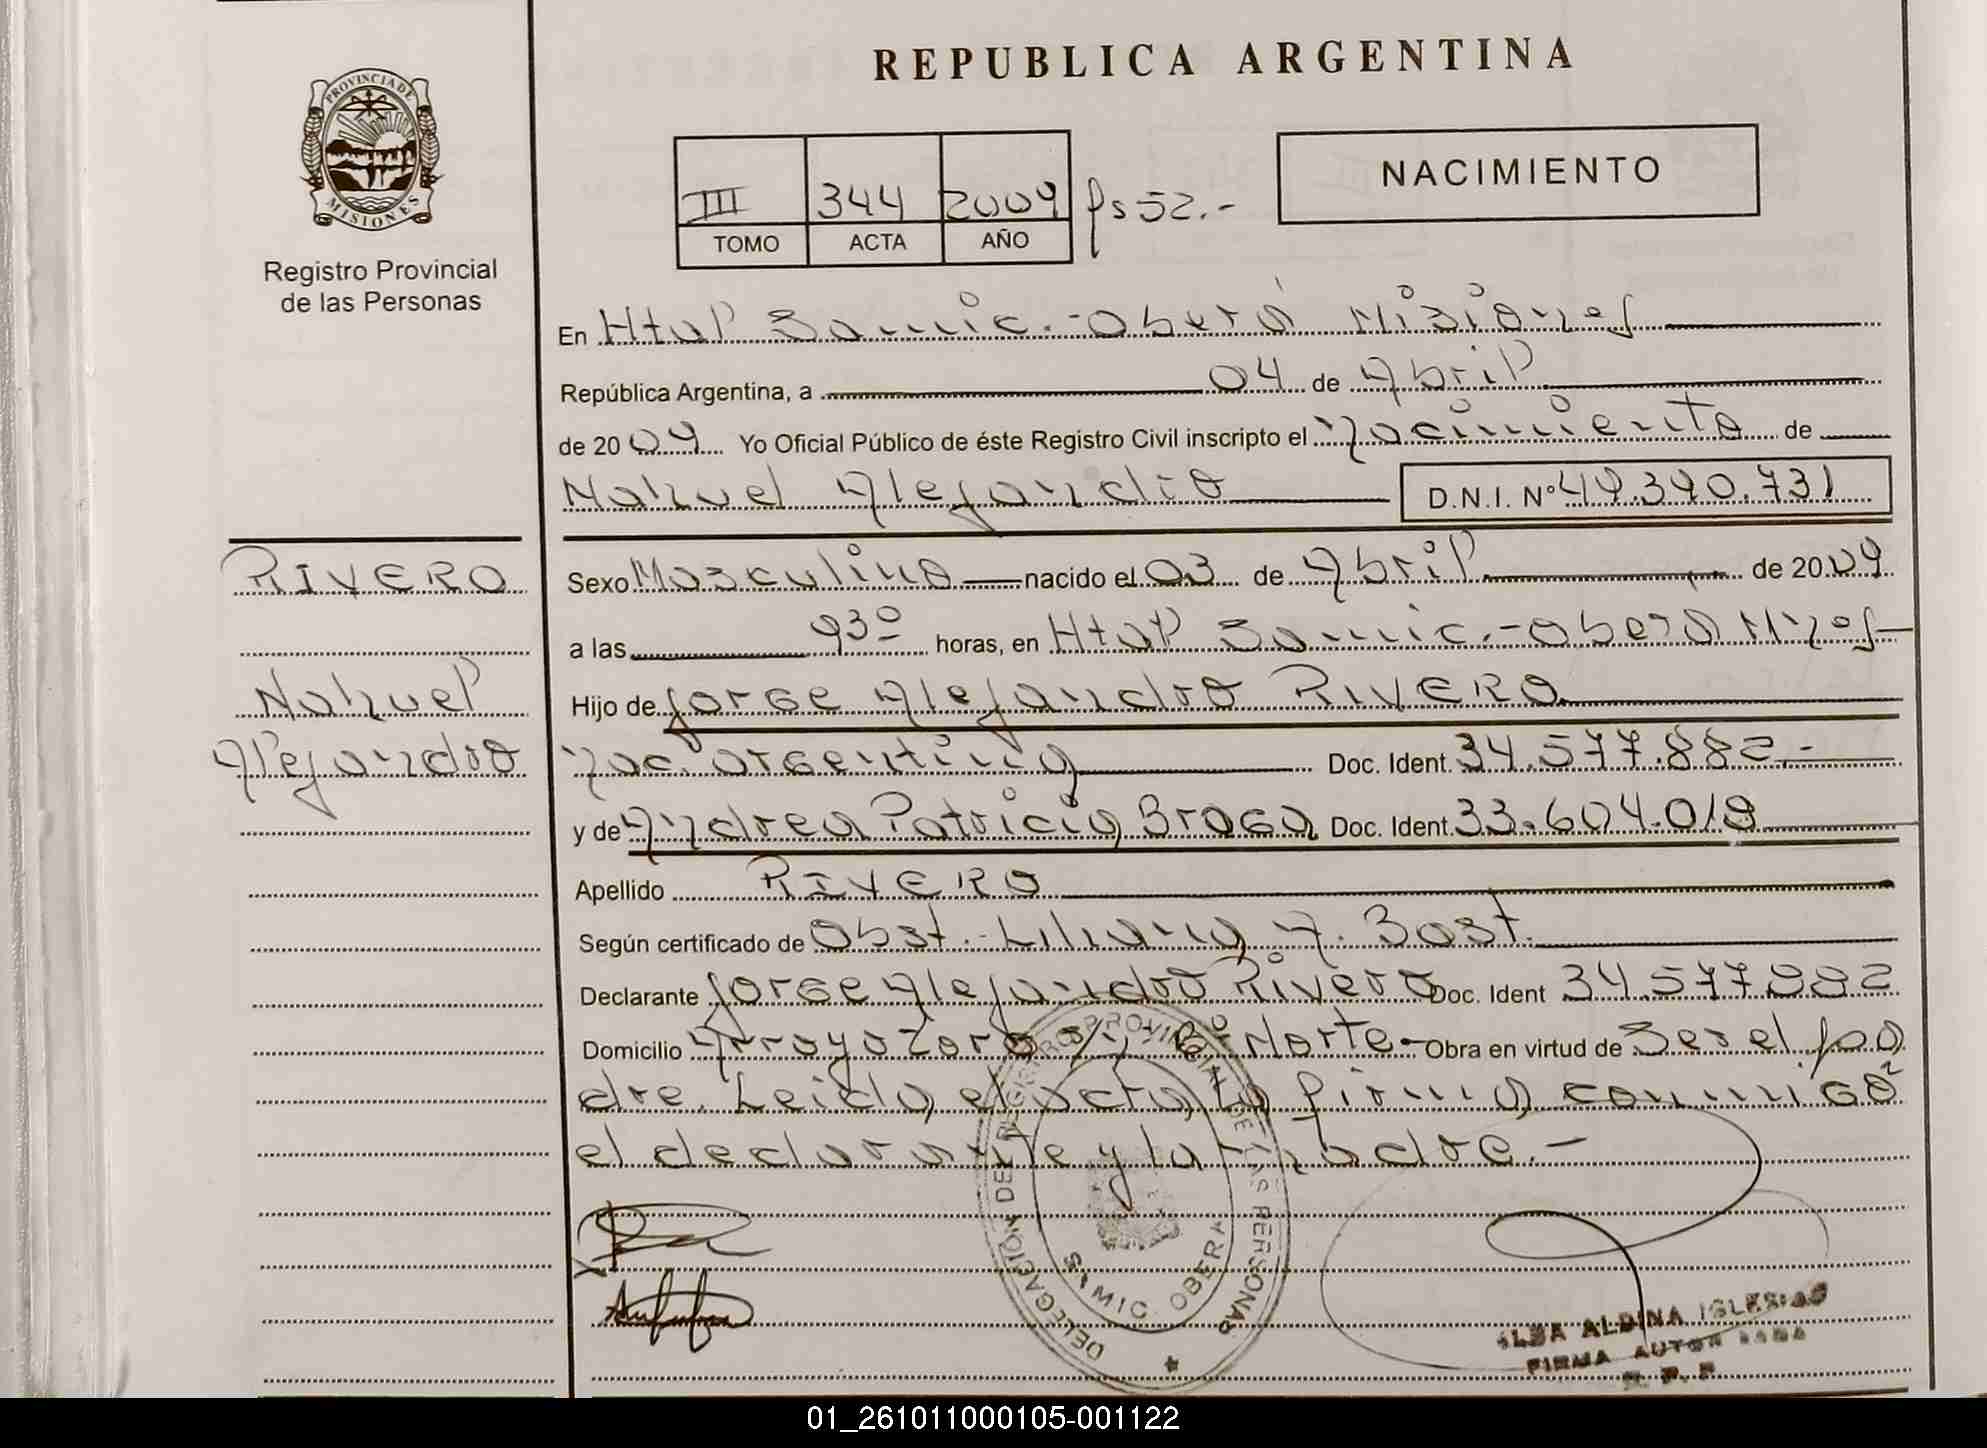 REPUBLICA ARGENTINA
PROVINCIA DE MISIONES
Registro Provincial
de las Personas
III 344 2009 fs 52.-
TOMO ACTA AÑO
NACIMIENTO
En Htal Samic.-Oberá Misiones
República Argentina, a 04 de Abril
de 2009 Yo Oficial Público de éste Registro Civil inscripto el nacimiento de
Nahuel Alejandro D.N.I. Nº 49.390.731
RIVERO
Nahuel
Alejandro
Sexo Masculino nacido el 03 de Abril de 2009
a las 9³⁰ horas, en Htal Samic.-Oberá Mnes
Hijo de Jorge Alejandro RIVERO
nac. argentina Doc. Ident. 34.577.882.-
y de Andrea Patricia Braga Doc. Ident. 33.604.018
Apellido RIVERO
Según certificado de Obst.-Liliana A. Bast.
Declarante Jorge Alejandro Rivero Doc. Ident 34.577.882
Domicilio Arroyo Zaro s/n Bº Norte- Obra en virtud de Ser el pa
dre. Leida el acta, la firma conmigo
el declarante y la madre.-
DELEGACION DEL REGISTRO PROVINCIAL DE LAS PERSONAS
SAMIC OBERA
ALBA ALDINA IGLESIAS
FIRMA AUTORIZADA
R. P. P.
01_261011000105-001122